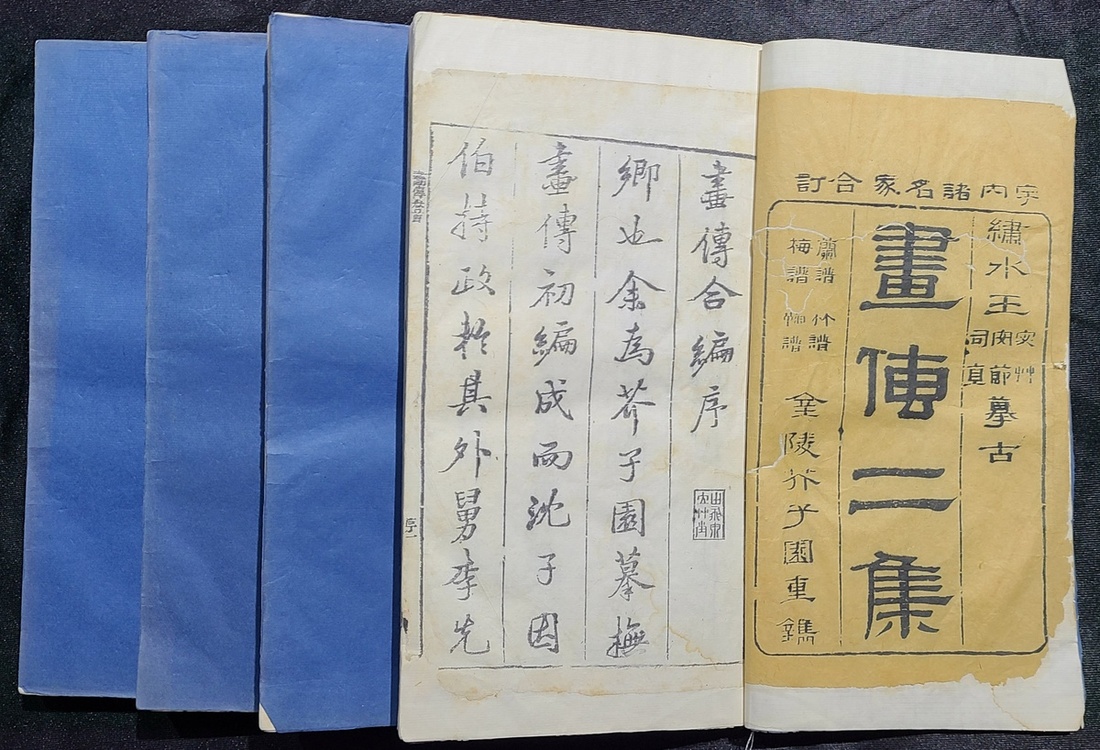 宇内諸名家合訂
繡水王宓艸安節司直摹古
畫傳二集
蘭譜 竹譜
梅譜 菊譜
金陵芥子園重鐫
畫傳合編序
鄉也余為芥子園摹橅
畫傳初編成而沈子因
伯持政於其外舅李先
序一